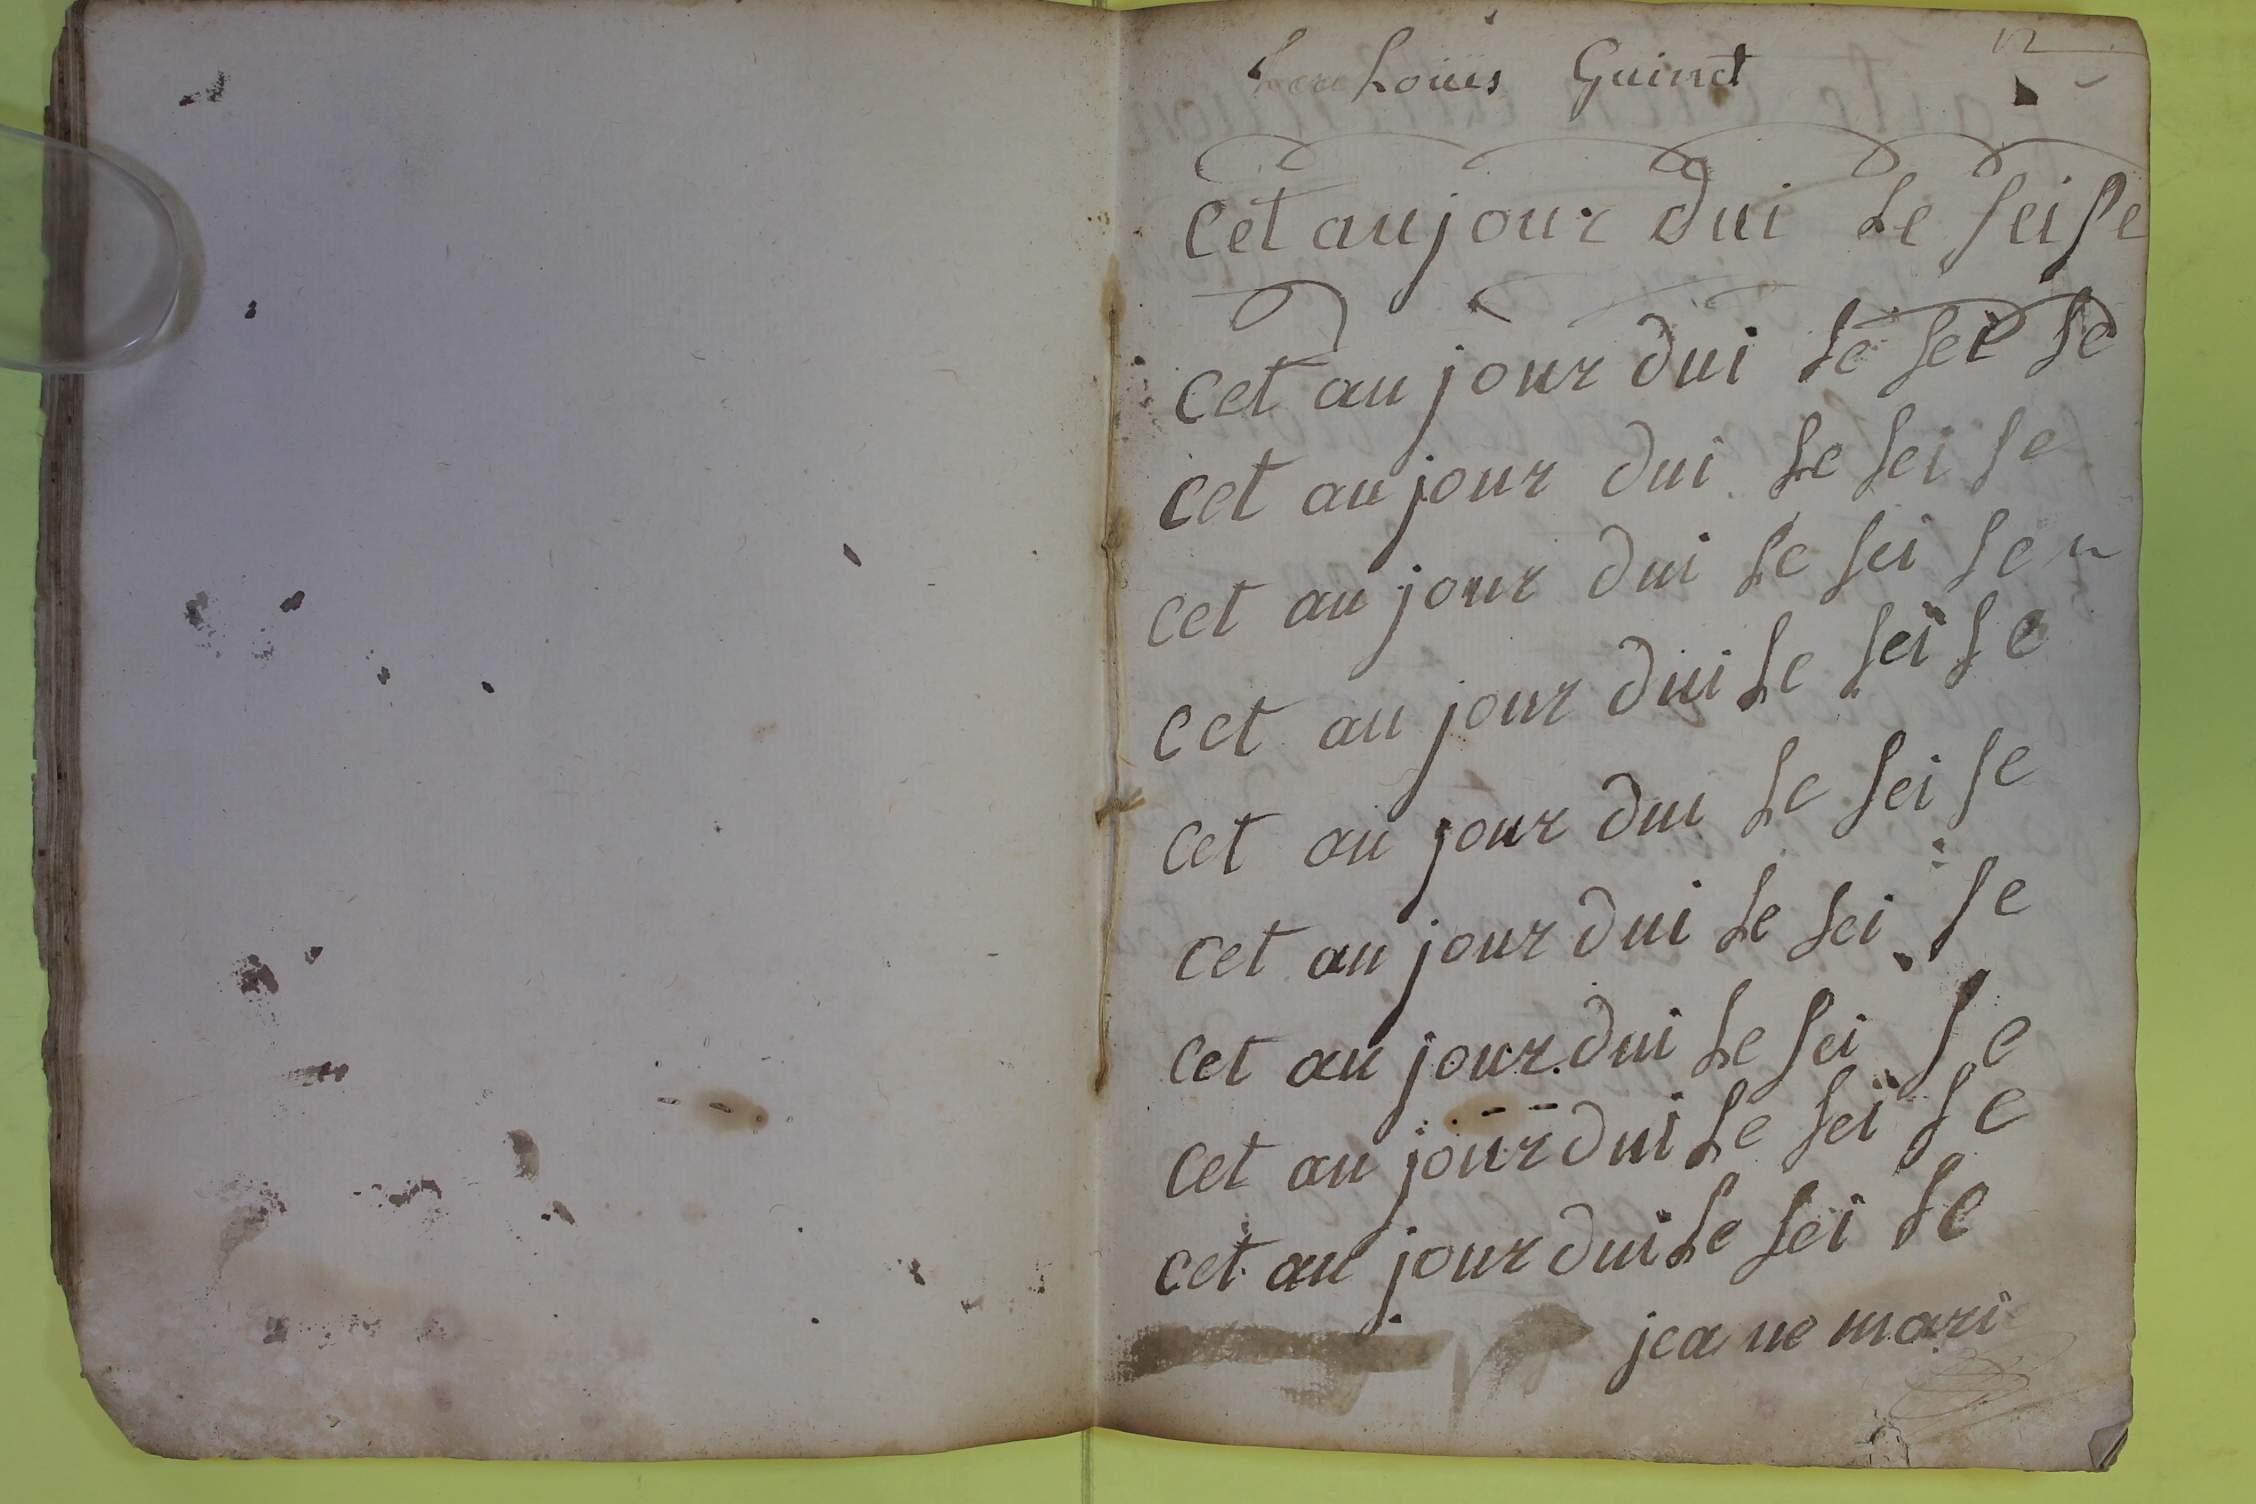 Loüis Guinet
Cet aujour dui Le seise
Cet au jour dui Le sei se
Cet au jour dui Le sei se
Cet au jour dui Le sei se n
Cet au jour dui Le sei se
Cet au jour dui Le sei se
Cet au jour dui Le sei se
Cet au jour dui Le sei se
Cet au jour dui Le sei se
Cet au jour dui Le sei se
jea ne mari